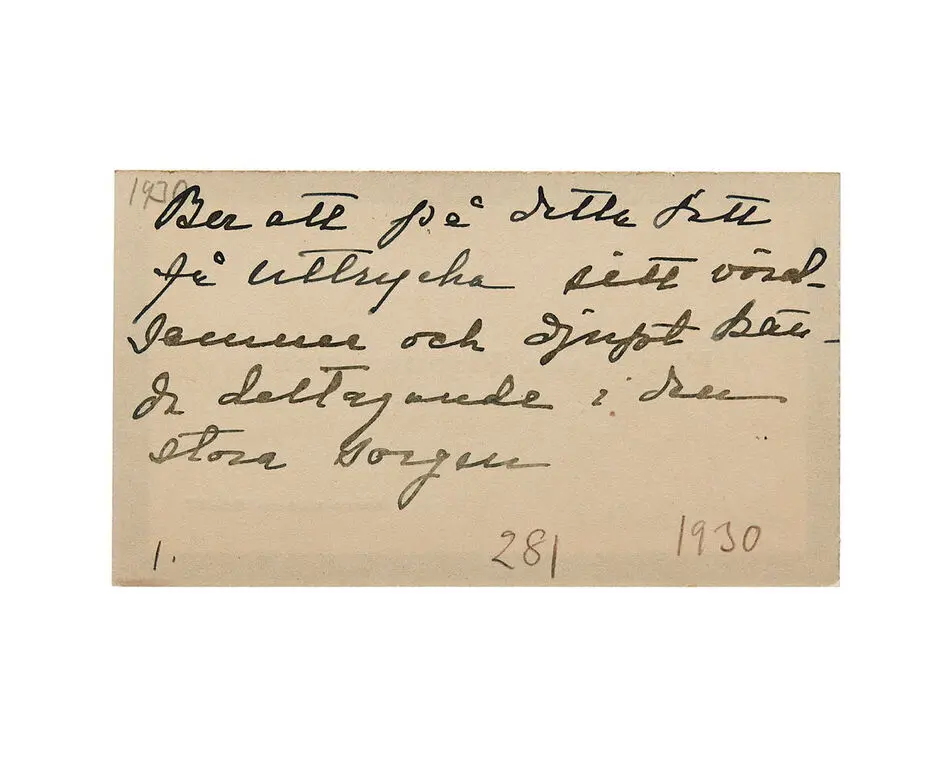 1930
Ber att på detta sätt
få uttrycka sitt vörd-
samma och djupt kän-
da deltagande i den
stora sorgen
1. 281 1930